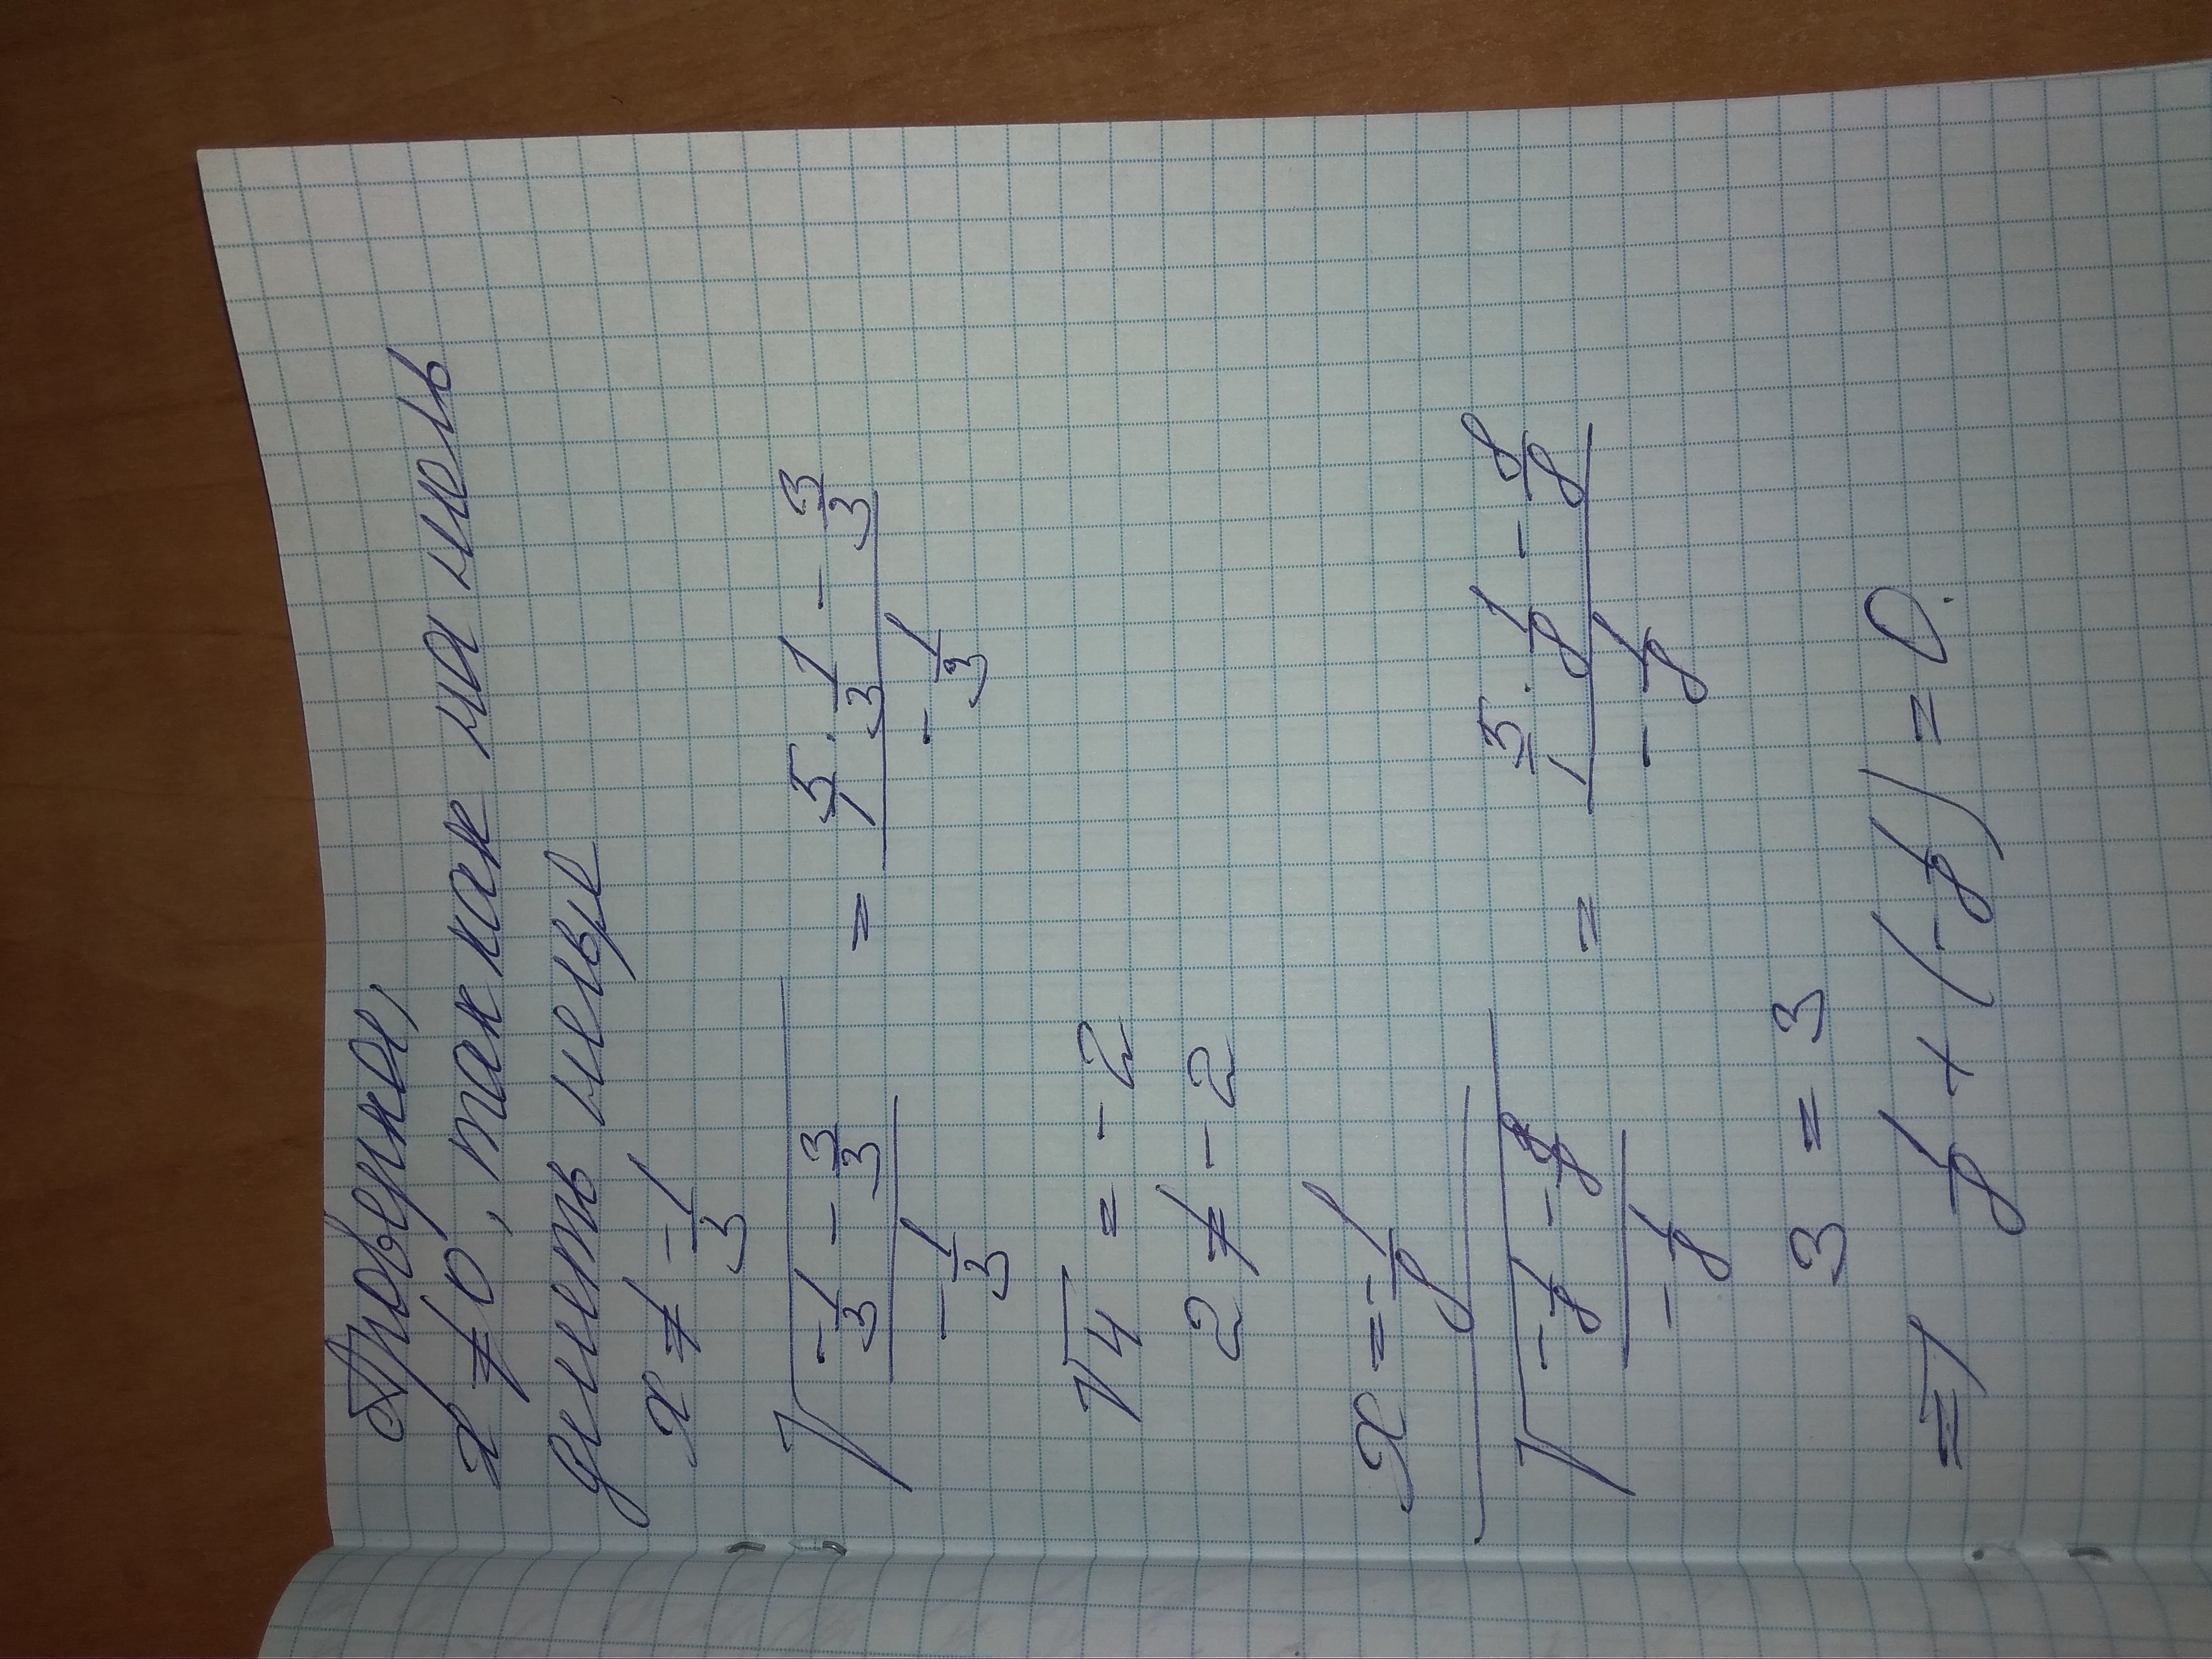 Проверка,
x ≠ 0, так как на ноль
делить нельзя
x ≠ -1/3
√((-1/3 - 3/3)/(-1/3)) = (5/1 · 1/3 - 3/3)/(-1/3)
√4 = -2
2 ≠ -2
x = -1/8
√((-1/8 - 8/8)/(-1/8)) = (5/1 · 1/8 - 8/8)/(-1/8)
3 = 3
=> 1/8 + (-1/8) = 0.